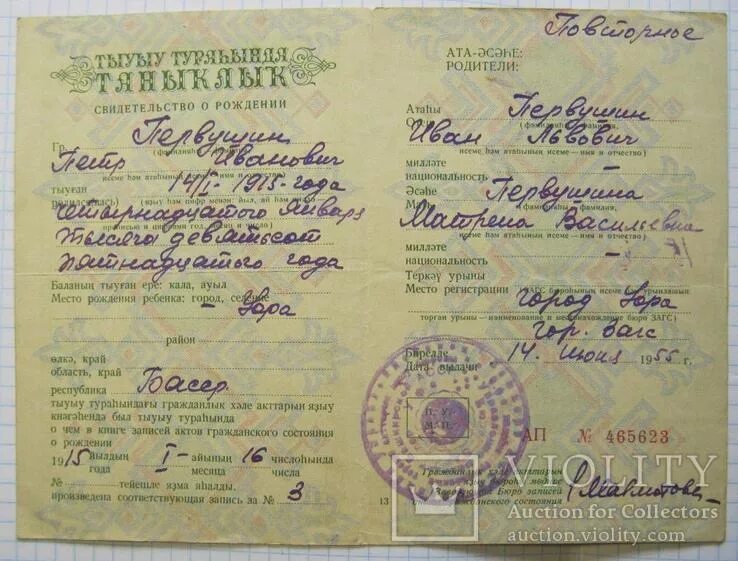 ТЫУЫУ ТУРАҺЫНДА
ТАНЫКЛЫК
СВИДЕТЕЛЬСТВО О РОЖДЕНИИ
Гр. Первушин
(фамилияһы) (фамилия)
Петр Иванович
исеме һәм атаһының исеме имя и отчество
тыуған 14/I - 1915 - года
родился(лась) (йыл һәм цифр менән йыл, ай һәм көн
четырнадцатого января
прописью и цифрами год, месяц и число)
тысяча девятьсот
пятнадцатого года
Баланың тыуған ере: кала, ауыл
Место рождения ребенка: город, селение
- Уфа
район
өлкә, край
область, край
республика Басср.
тыуыу тураһындағы гражданлык хәле акттарын яҙыу
кнәгәһендә был тыуыу тураһында
о чем в книге записей актов гражданского состояния
о рождении
1915 йылдың I айының 16 числоһында
года месяца числа
№ тейешле яҙма яһалды.
произведена соответствующая запись за № 3
Повторное
АТА-ӘСӘҺЕ:
РОДИТЕЛИ:
Атаһы Первушин
(фамилияһы) фамилия,
Иван Львович
исеме һәм атаһының исеме имя и отчество)
милләте
национальность -
Әсәһе Первушина
Мать (фамилияһы) фамилия,
Матрена Васильевна
исеме һәм атаһының исеме имя и отчество)
милләте
национальность -
Теркәү урыны
Место регистрации (ЗАГС бюроһының исеме һәм урынлашыу
город Уфа
торған урыны — наименование и местонахождение бюро ЗАГС)
гор. Загс
Бирелде
Дата выдачи 14. июня 1955 г.
АП № 465623
Гражданлык хәле акттарын
яҙыу бюроһы мөдире
Заведующий Бюро записей
актов гражданского состояния
13
VIOLITY
Auction for Collectors
auction.violity.com